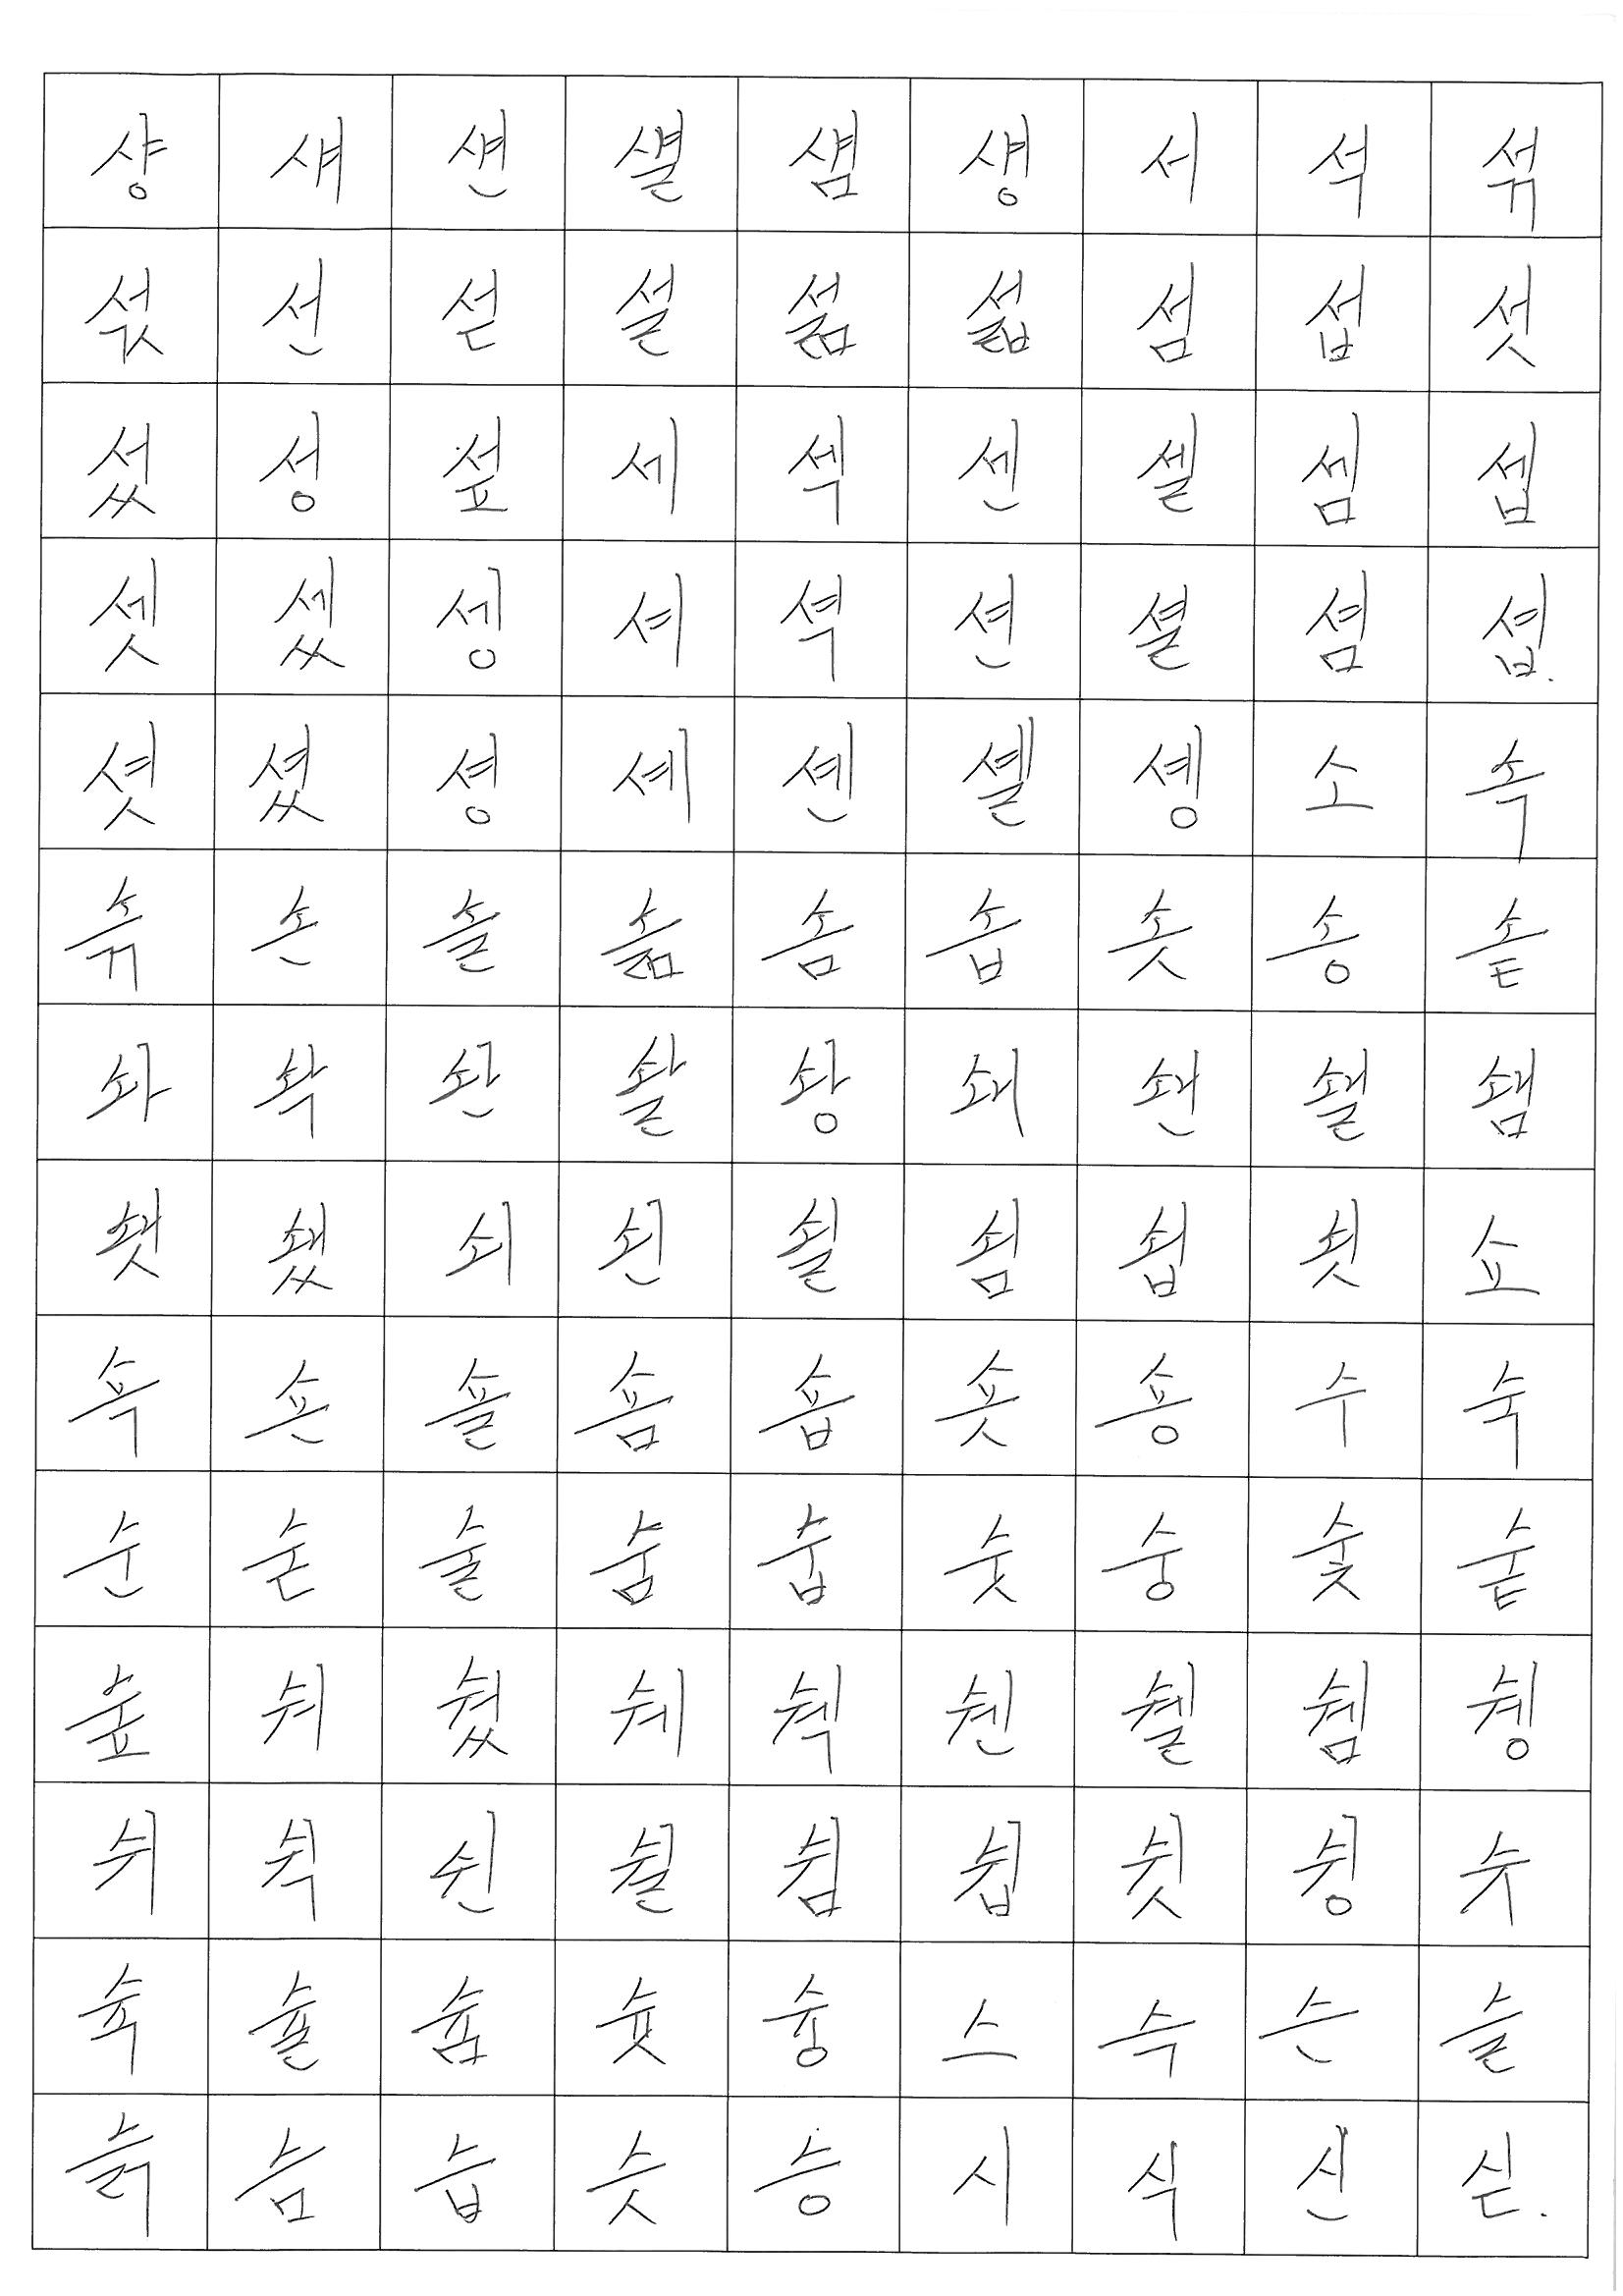 샹 섀 섄 섈 섐 섕 서 석 섞
섟 선 섣 설 섦 섧 섬 섭 섯
섰 성 섶 세 섹 센 셀 셈 셉
셋 셌 셍 셔 셕 션 셜 셤 셥.
셧 셨 셩 셰 셴 셸 솅 소 속
솎 손 솔 솖 솜 솝 솟 송 솥
솨 솩 솬 솰 솽 쇄 쇈 쇌 쇔
쇗 쇘 쇠 쇤 쇨 쇰 쇱 쇳 쇼
쇽 숀 숄 숌 숍 숏 숑 수 숙
순 숟 술 숨 숩 숫 숭 숯 숱
숲 숴 쉈 쉐 쉑 쉔 쉘 쉠 쉥
쉬 쉭 쉰 쉴 쉼 쉽 쉿 슁 슈
슉 슐 슘 슛 슝 스 슥 슨 슬
슭 슴 습 슷 승 시 식 신 싣.